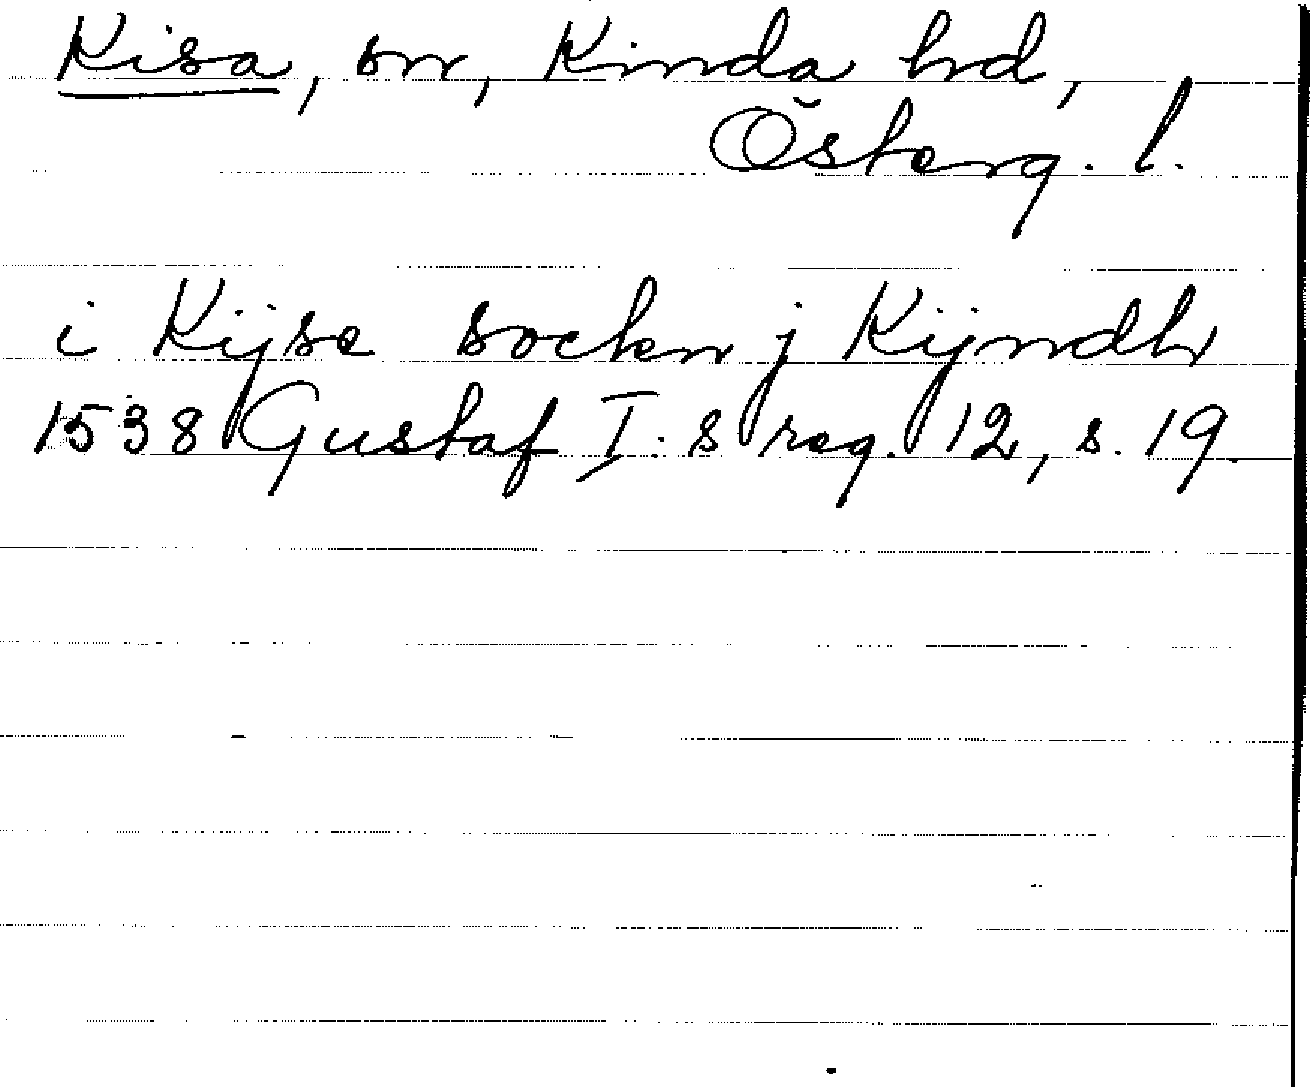 Kisa, sn, Kinda hd,
Österg. l.
i Kijse socken j Kijndh
1538 Gustaf I:s reg. 12, s. 19.